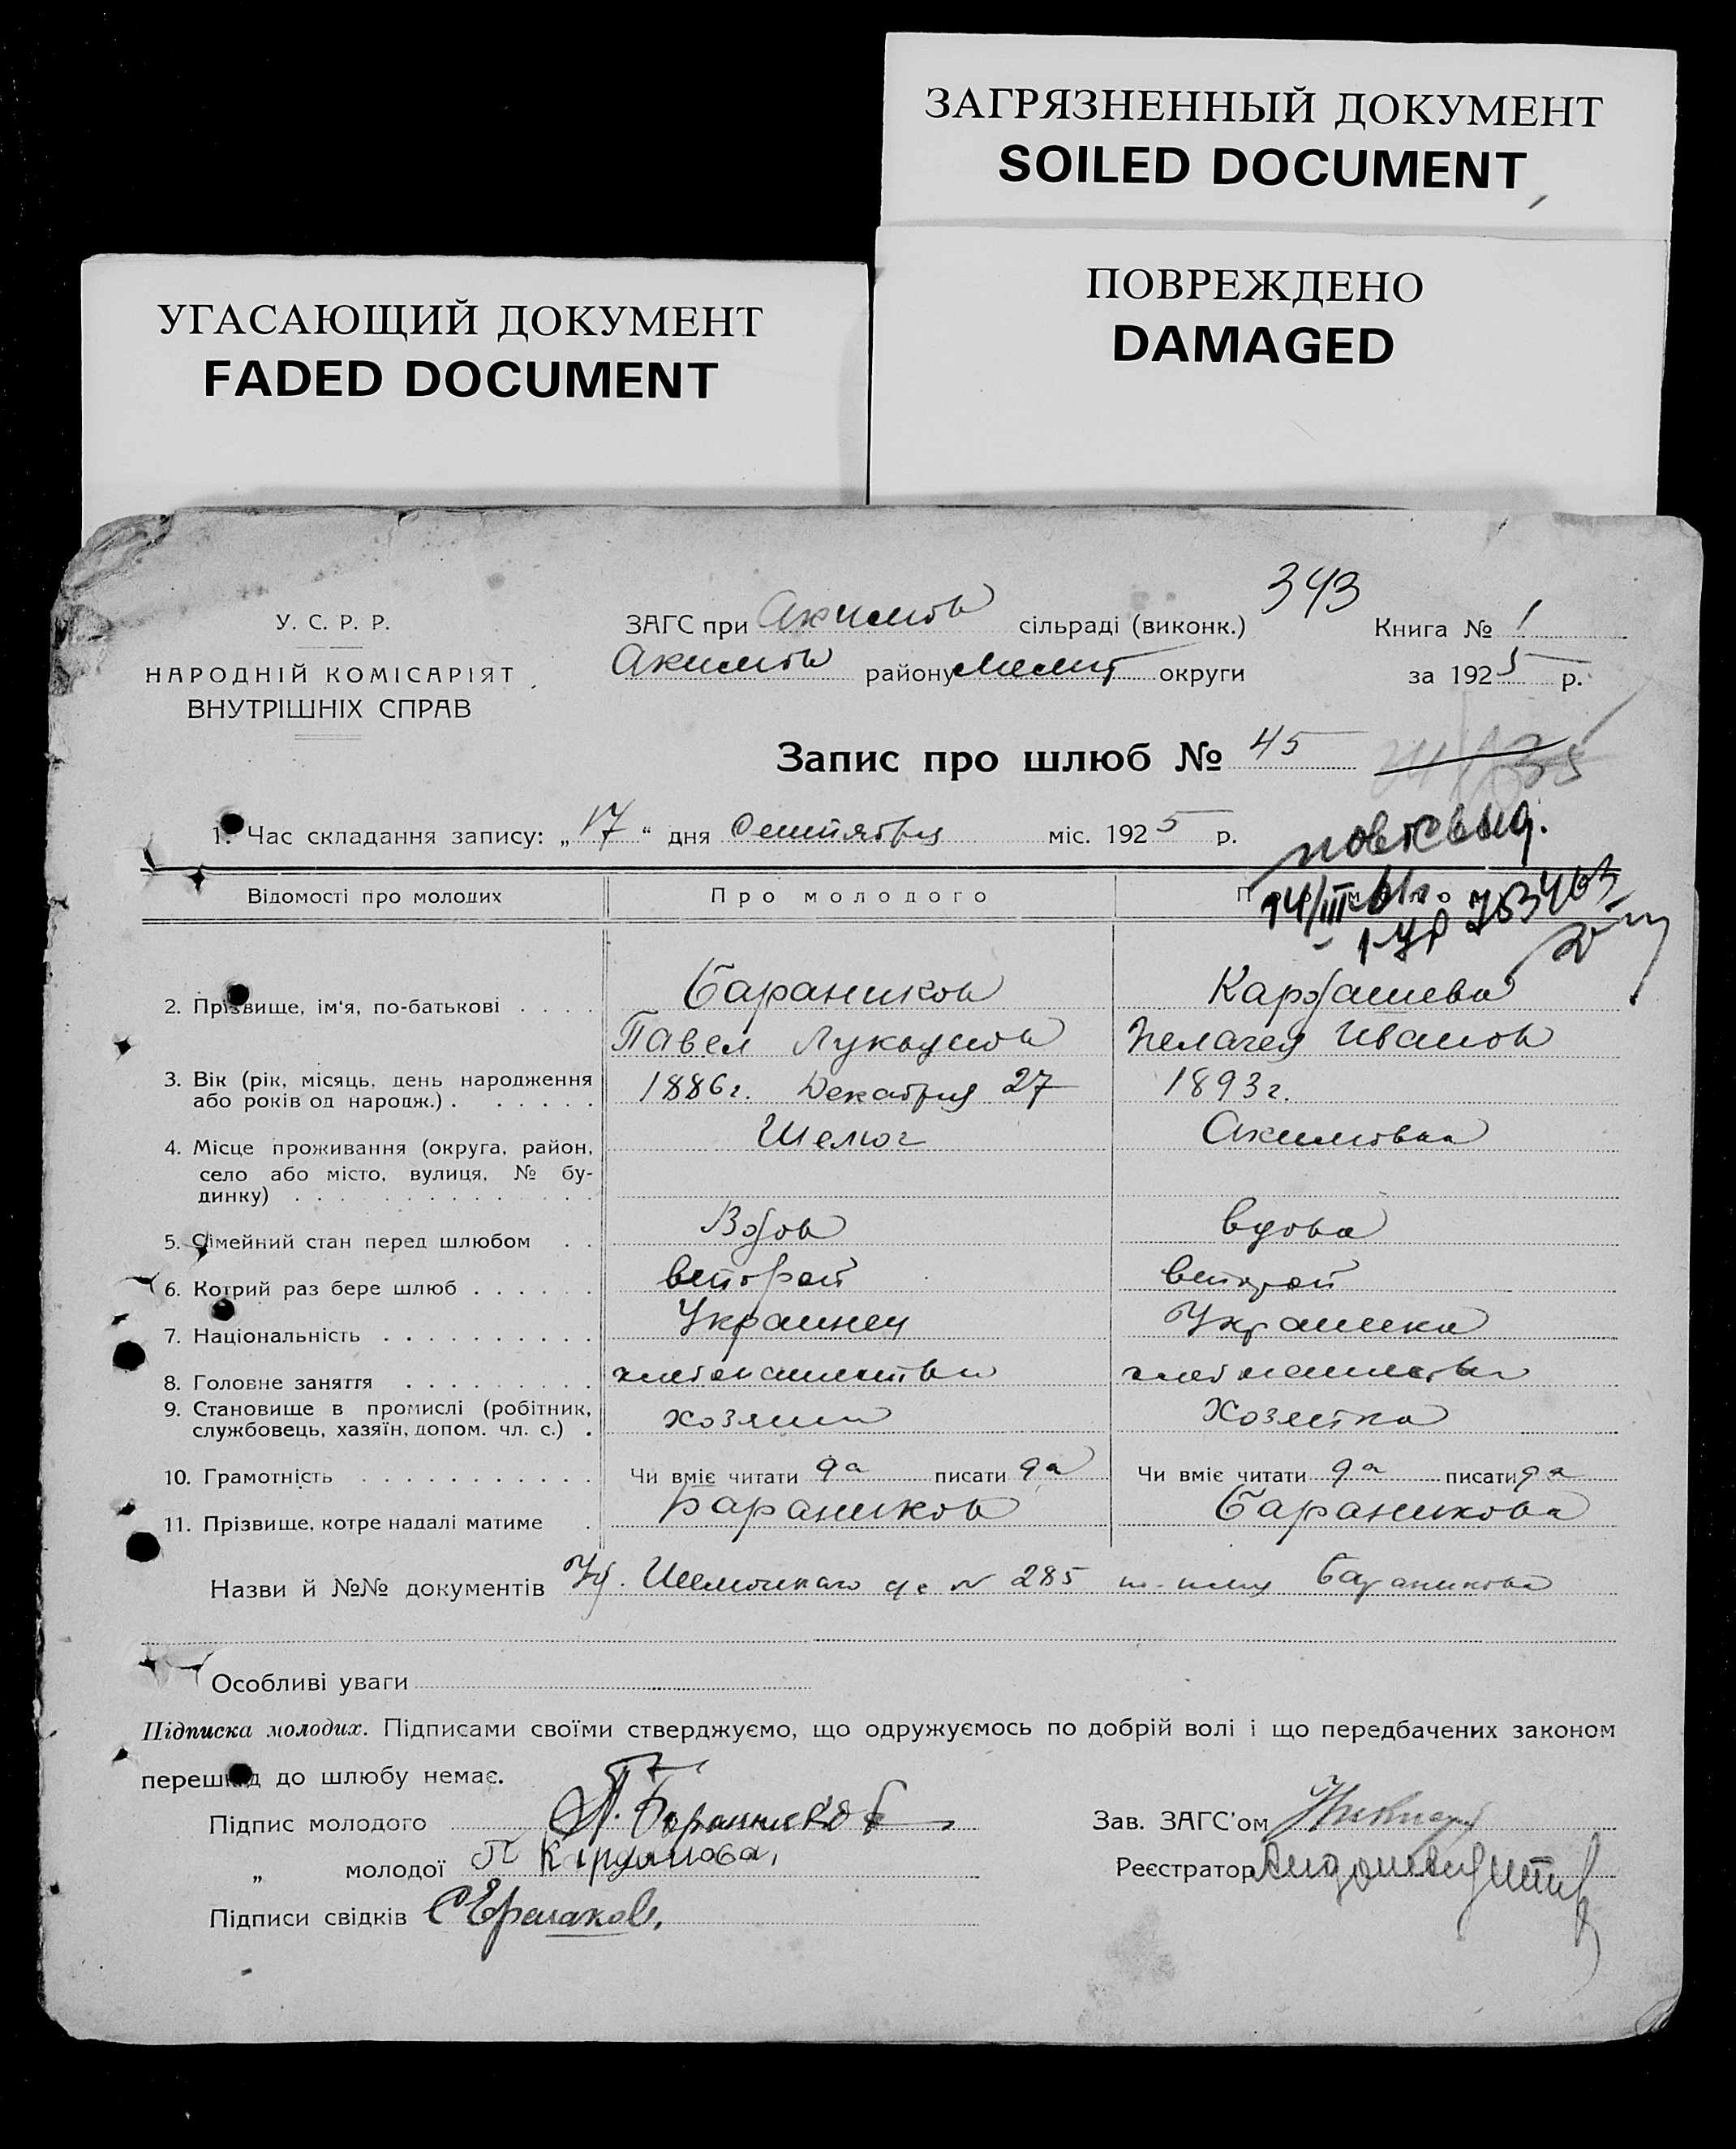 ЗАГРЯЗНЕННЫЙ ДОКУМЕНТ
SOILED DOCUMENT
ПОВРЕЖДЕНО
DAMAGED
УГАСАЮЩИЙ ДОКУМЕНТ
FADED DOCUMENT
343
У. С. Р. Р.
НАРОДНІЙ КОМІСАРІЯТ
ВНУТРІШНІХ СПРАВ
ЗАГС при Акимов сільраді (виконк.)
Акимов району Мелит округи
Книга № 1
за 1925 р.
Запис про шлюб № 45
1. Час складання запису: „17" дня Сентября міс. 1925 р.
Відомості про молодих Про молодого
14/III
2. Прізвище, ім'я, по-батькові . . . . Бараников
Павел Пелагея Иванов
3. Вік (рік, місяць, день народження 1886г. Декабря 27 1893г.
або років од народж.) . . . . . .
4. Місце проживання (округа, район, Шелюг Акимовка
село або місто, вулиця, № бу-
динку)
5. Сімейний стан перед шлюбом . . Вдов вдова
6. Котрий раз бере шлюб . . . . . . второй второй
7. Національність . . . . . . . . . . Украинец Украинка
8. Головне заняття . . . . . . . . . хлебопашество хлебопашество
9. Становище в промислі (робітник, хозяин Хозяйка
службовець, хазяїн, допом. чл. с.) .
10. Грамотність . . . . . . . . . . . Чи вміє читати да писати да Чи вміє читати да писати да
11. Прізвище, котре надалі матиме . Бараников Бараникова
Назви й №№ документів Уд. № 285 Бараникова
Особливі уваги
Підписка молодих. Підписами своїми стверджуємо, що одружуємось по добрій волі і що передбачених законом
перешкод до шлюбу немає.
Підпис молодого П. Бараников
Зав. ЗАГС'ом
„ молодої П
Реєстратор
Підписи свідків С Ермаков.